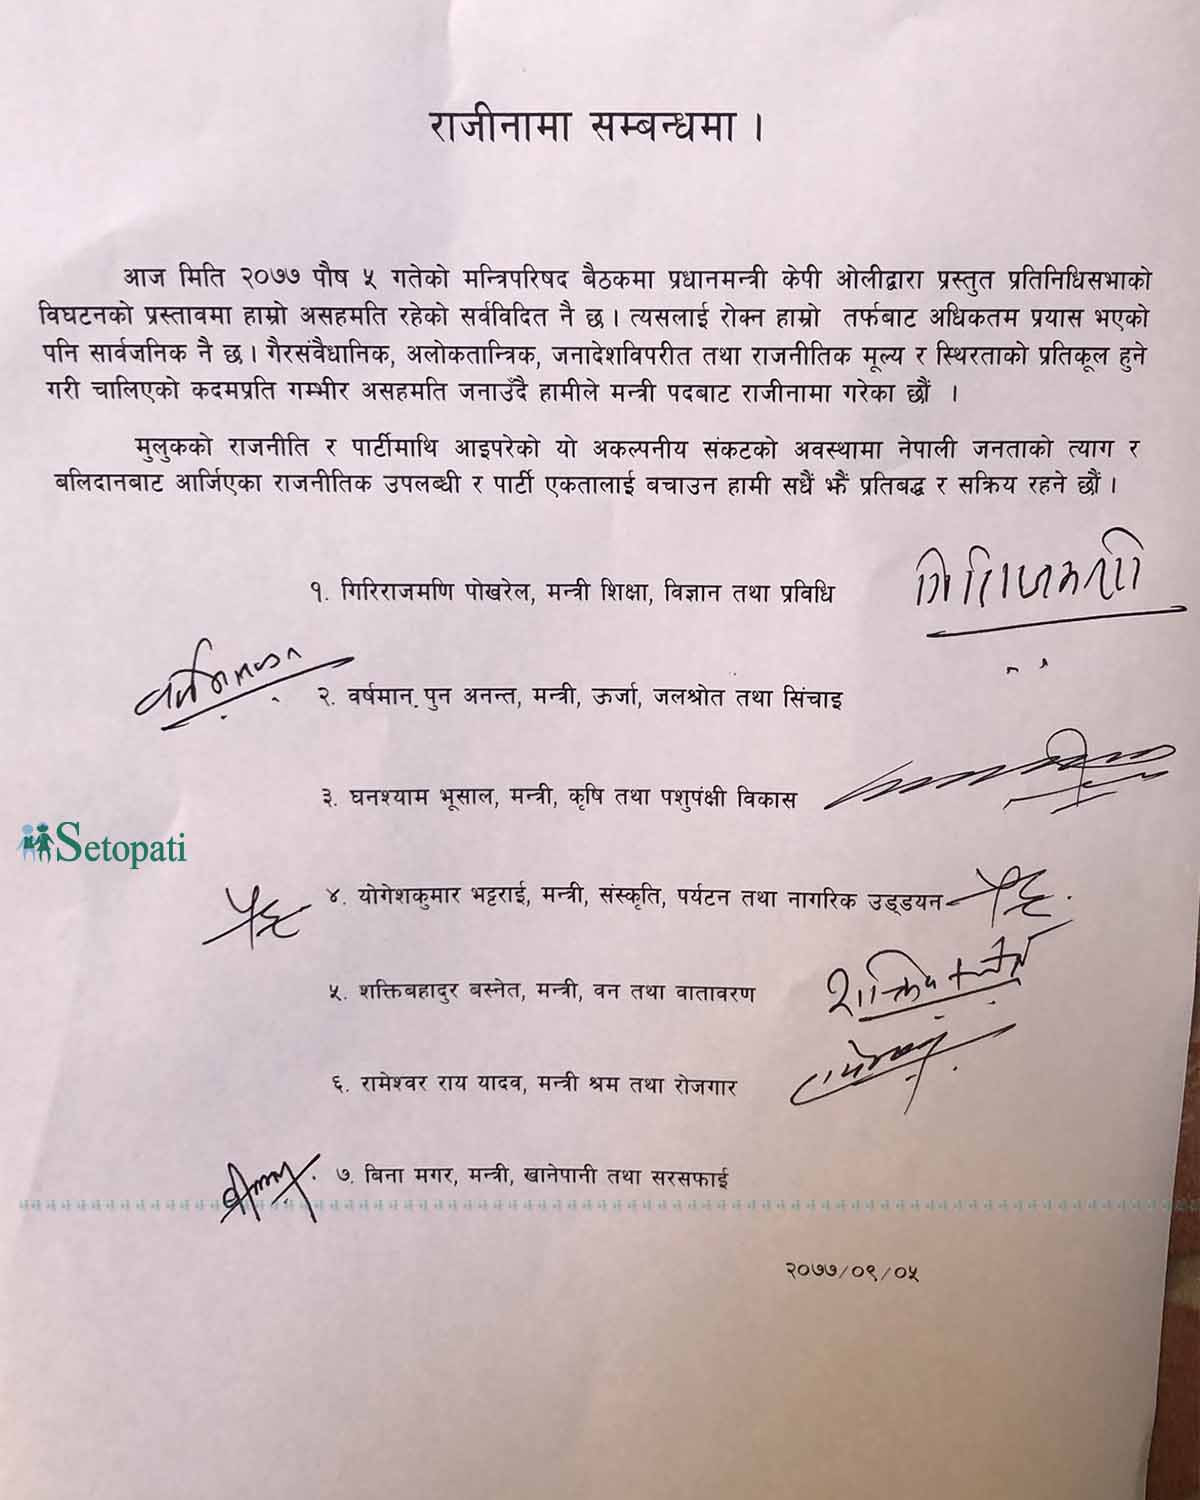 राजीनामा सम्बन्धमा ।
आज मिति २०७७ पौष ५ गतेको मन्त्रिपरिषद बैठकमा प्रधानमन्त्री केपी ओलीद्वारा प्रस्तुत प्रतिनिधिसभाको
विघटनको प्रस्तावमा हाम्रो असहमति रहेको सर्वविदित नै छ । त्यसलाई रोक्न हाम्रो तर्फबाट अधिकतम प्रयास भएको
पनि सार्वजनिक नै छ । गैरसंवैधानिक, अलोकतान्त्रिक, जनादेशविपरीत तथा राजनीतिक मूल्य र स्थिरताको प्रतिकूल हुने
गरी चालिएको कदमप्रति गम्भीर असहमति जनाउँदै हामीले मन्त्री पदबाट राजीनामा गरेका छौं ।
मुलुकको राजनीति र पार्टीमाथि आइपरेको यो अकल्पनीय संकटको अवस्थामा नेपाली जनताको त्याग र
बलिदानबाट आर्जिएका राजनीतिक उपलब्धी र पार्टी एकतालाई बचाउन हामी सधैं झैं प्रतिबद्ध र सक्रिय रहने छौं ।
१. गिरिराजमणि पोखरेल, मन्त्री शिक्षा, विज्ञान तथा प्रविधि
२. वर्षमान पुन अनन्त, मन्त्री, ऊर्जा, जलश्रोत तथा सिंचाइ
३. घनश्याम भूसाल, मन्त्री, कृषि तथा पशुपंक्षी विकास
Setopati
४. योगेशकुमार भट्टराई, मन्त्री, संस्कृति, पर्यटन तथा नागरिक उड्डयन
५. शक्तिबहादुर बस्नेत, मन्त्री, वन तथा वातावरण
६. रामेश्वर राय यादव, मन्त्री श्रम तथा रोजगार
७. बिना मगर, मन्त्री, खानेपानी तथा सरसफाई
२०७७/०९/०५